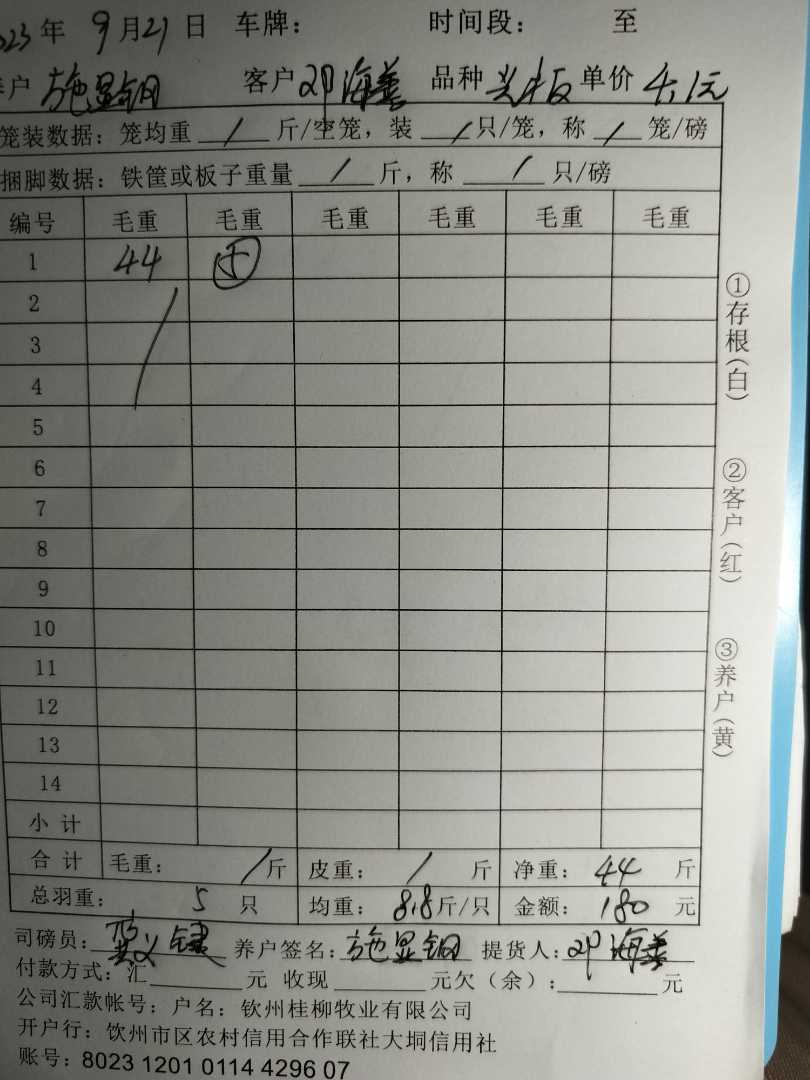 23年 9月21日 车牌： 时间段： 至
户 施显钢 客户 邓海善 品种 单价 4.1元
笼装数据：笼均重 / 斤/空笼，装 / 只/笼，称 / 笼/磅
捆脚数据：铁筐或板子重量 / 斤，称 / 只/磅
编号 毛重 毛重 毛重 毛重 毛重 毛重
1 44 ⑤
2
3
4
5
6
7
8
9
10
11
12
13
14
小计
合计 毛重： / 斤 皮重： / 斤 净重： 44 斤
总羽重： 5 只 均重： 8.8 斤/只 金额： 180 元
司磅员： 养户签名：施显钢 提货人：邓海善
付款方式：汇 元 收现 元欠（余）： 元
公司汇款帐号：户名：钦州桂柳牧业有限公司
开户行：饮州市区农村信用合作联社大垌信用社
账号：8023 1201 0114 4296 07
①存根（白）
②客户（红）
③养户（黄）